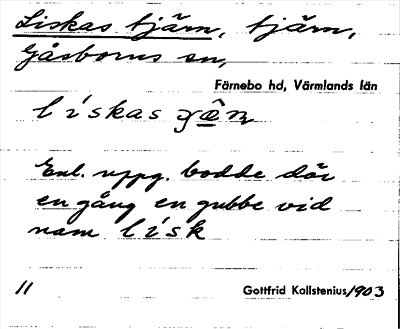 Liskas tjärn, tjärn,
Gåsborns sn,
Färnebo hd, Värmlands län
lískas
Enl. uppg. bodde där
en gång en gubbe vid
namn lísk
11 Gottfrid Kallstenius/1903